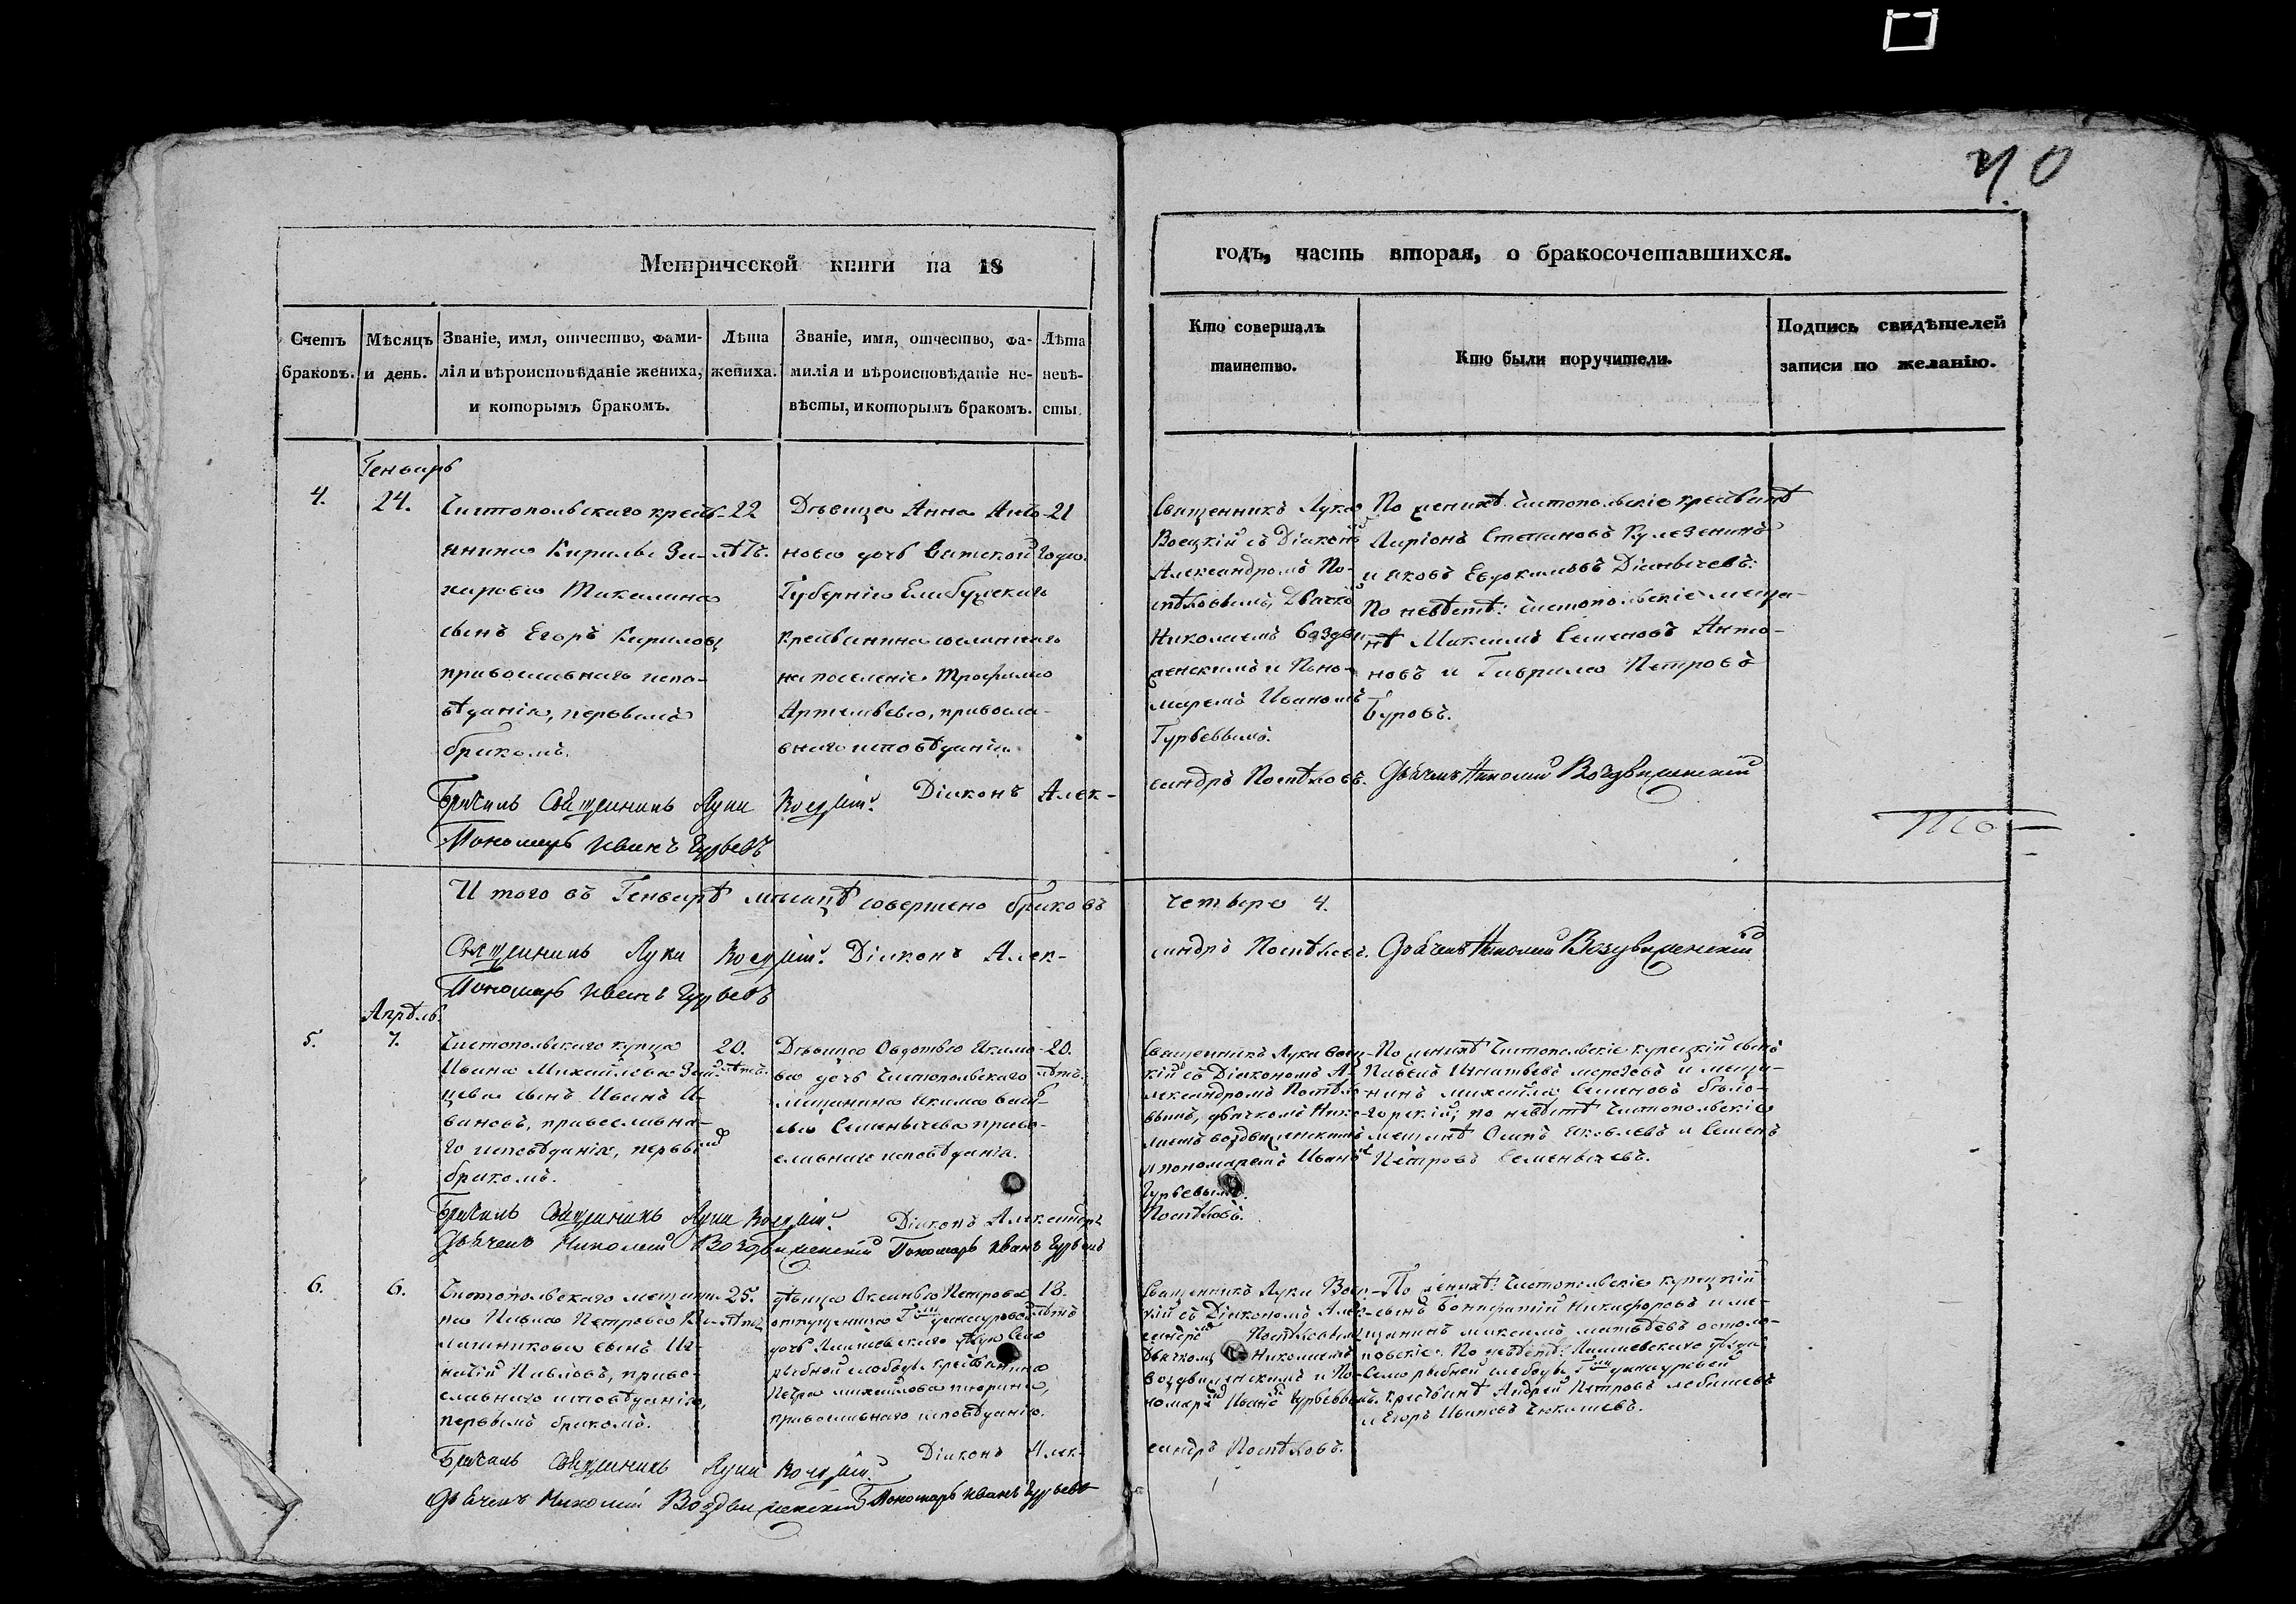 70
Метрической книги на 18
годъ, часть вторая, о бракосочетавшихся.
Счетъ браковъ.
Мѣсяцъ и день.
Званіе, имя, отчество, фами-
лія и вѣроисповѣданіе жениха,
и которымъ бракомъ.
Лѣта
жениха.
Званіе, имя, отчество, фа-
милія и вѣроисповѣданіе не-
вѣсты, и которымъ бракомъ.
Лѣта
невѣ-
сты.
Кто совершалъ
таинство.
Кто были поручители.
Подпись свидѣтелей
записи по желанію.
4.
Генварь
24.
Чистопольскаго кресть-
янина Кирилы За-
харова
сынъ Егоръ Кириловъ
православнаго испо-
вѣданія, первымъ
бракомъ.
22
лѣтъ.
Дѣвица Анна
дочь Вятской
Губерніи Елабужскаго
крестьянина сосланнаго
на поселеніе Трофима
Артемьева, правосла-
внаго исповѣданія.
21
года.
Священникъ Лука
Воецкій съ Діакономъ
Александромъ По-
спѣловымъ, Дьячкомъ
Николаемъ Воздви-
женскимъ и Поно-
маремъ Иваномъ
Гурьевымъ.
По женихѣ: Чистопольскіе крестьянѣ
Ларіонъ Степановъ
и Яковъ Евдокимовъ
По невѣстѣ: Чистопольскіе меща-
нѣ Максимъ Семеновъ Анто-
новъ и Гаврила Петровъ
Буровъ.
Священникъ Лука Воецкій. Діаконъ Алек-
сандръ Поспѣловъ. Дьячекъ Николай Воздвиженскій
Пономарь Иванъ Гурьевъ
И того въ Генварѣ мѣсяцѣ совершено браковъ
четыре 4.
Священникъ Лука Воецкій. Діаконъ Алек-
сандръ Поспѣловъ. Дьячекъ Николай Воздвиженскій
Пономарь Иванъ Гурьевъ
5.
Апрѣль
7.
Чистопольскаго купца
Ивана Михайлова
сынъ Иванъ И-
вановъ, православна-
го исповѣданія, первымъ
бракомъ.
20.
лѣтъ.
Дѣвица Овдотья Якимо-
ва дочь Чистопольскаго
мещанина Якима
Семеньичева право-
славнаго исповѣданія.
20.
лѣтъ.
Священникъ Лука Воец-
кій съ Діакономъ А-
лександромъ Поспѣло-
вымъ, дьячкомъ Нико-
лаемъ Воздвиженскимъ
и пономаремъ Иваномъ
Гурьевымъ.
По женихѣ Чистопольскіе купецкій сынъ
Павелъ Игнатьевъ Морозовъ и меща-
нинъ Михайла Семеновъ Бѣло-
горскій; по невѣстѣ Чистопольскіе
мещанѣ Осипъ Яковлевъ и Семенъ
Петровъ Семеньичевъ.
Священникъ Лука Воецкій. Діаконъ Александръ
Поспѣловъ.
Дьячекъ Николай Воздвиженскій Пономарь Иванъ Гурьевъ
6.
6.
Чистопольскаго мещани-
на Павла Петрова
сынъ Иг-
натій Павловъ, право-
славнаго исповѣданія,
первымъ бракомъ.
25.
лѣтъ
дѣвица Оксинья Петрова
дочь Лаишевскаго уѣзда Села
рыбной слободы крестьянина
Петра Михайлова Тюрина,
православнаго исповѣданія.
18.
лѣтъ
Священникъ Лука Воец-
кій съ Діакономъ Алек-
сандромъ Поспѣловымъ
Дьячкомъ Николаемъ
Воздвиженскимъ и По-
номаремъ Иваномъ Гурьевымъ.
По женихѣ: Чистопольскіе купецкій
сынъ Бонифатій Никифоровъ и ме-
щанинъ Максимъ Матвѣевъ
По невѣстѣ: Лаишевскаго уѣзда
Села рыбной слободы
крестьянѣ Андрей Петровъ
и Егоръ Ивановъ
Священникъ Лука Воецкій. Діаконъ Алек-
сандръ Поспѣловъ.
Дьячекъ Николай Воздвиженскій Пономарь Иванъ Гурьевъ